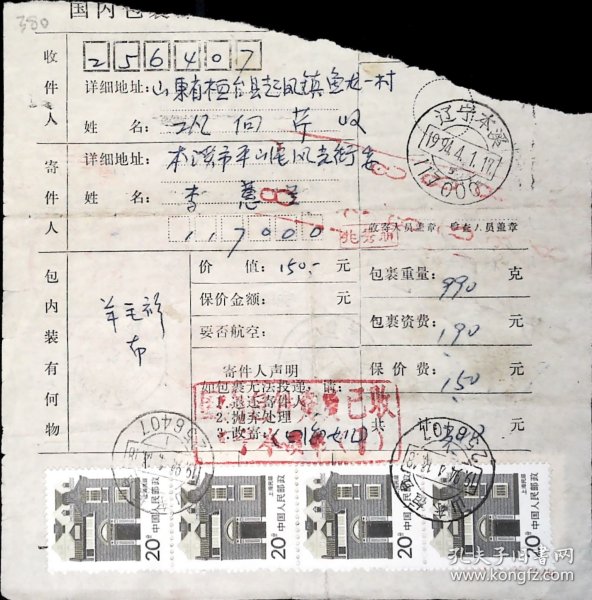 350
国内包裹
收件人
256407
详细地址:山东省桓台县起凤镇鱼龙一村
姓名: 巩向芹 收
寄件人
详细地址:本溪市平山区
姓名: 李慧
117000
辽宁本溪
1994.4.1.17
117000
收寄人员盖章 检查人员盖章
包内装有何物
羊毛衫
布
价值:150.- 元
保价金额: 元
要否航空:
包裹重量:990 克
包裹资费:190 元
保价费:150 元
共计: 元
寄件人声明
如包裹无法投递,请:
1.退还寄件人
2.抛弃处理
3.改寄:
已收
256407
256407
上海民居
中国人民邮政
20分
上海民居
中国人民邮政
20分
上海民居
中国人民邮政
20分
上海民居
中国人民邮政
20分
孔夫子旧书网
www.kongfz.com